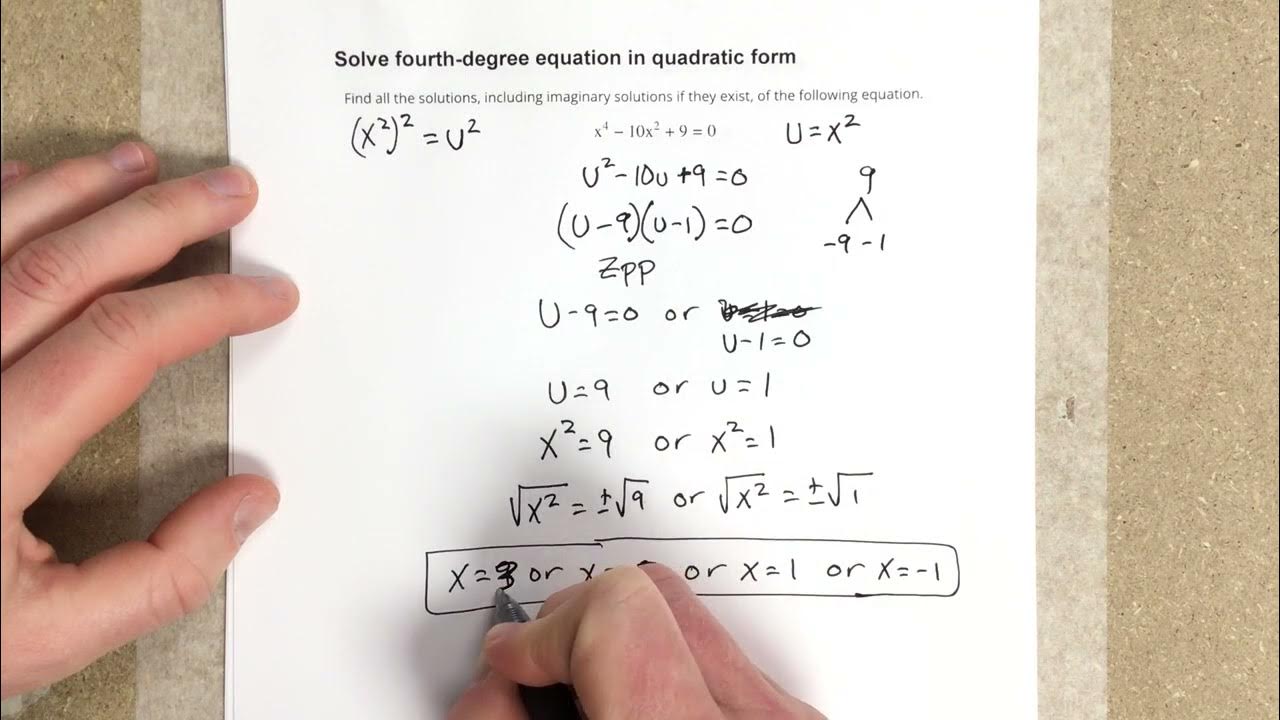 Solve fourth-degree equation in quadratic form
Find all the solutions, including imaginary solutions if they exist, of the following equation.
(x²)² = U²
x⁴ − 10x² + 9 = 0
U = x²
U² − 10u + 9 = 0
9
(U − 9)(u − 1) = 0
-9 -1
Zpp
U − 9 = 0 or
u − 1 = 0
U = 9 or u = 1
x² = 9 or x² = 1
√x² = ±√9 or √x² = ±√1
x = or x or x = 1 or x = -1